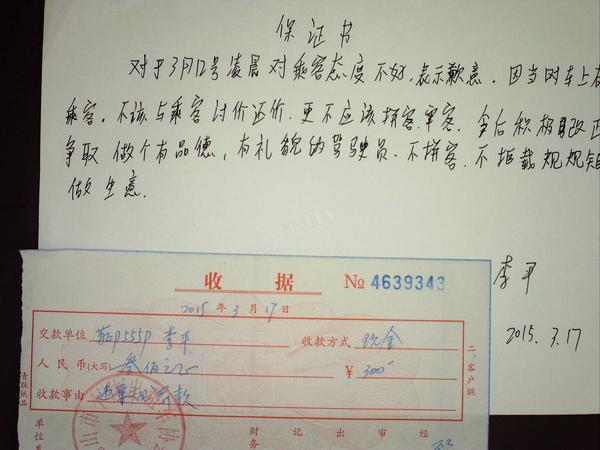 保证书
对于3月12号凌晨对乘客态度不好,表示歉意。因当时车上有
乘客。不该与乘客讨价还价.更不应该拼客.宰客.今后积极改正
争取做个有品德,有礼貌的驾驶员.不拼客.不拒载规规矩矩
做生意.
李平
2015.3.17
收据 № 4639343
2015年3月17日
交款单位 李平 收款方式 现金
人民币(大写) 叁佰元 ¥ 300
收款事由 违章规 款
二、客户联
青联纸品
山市
协
单位 财务 记 出 审 经